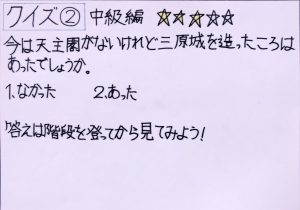 クイズ② 中級編 ☆☆☆☆☆
今は天主閣がないけれど三原城を造ったころは
あったでしょうか。
1.なかった 2.あった
答えは階段を登ってから見てみよう!